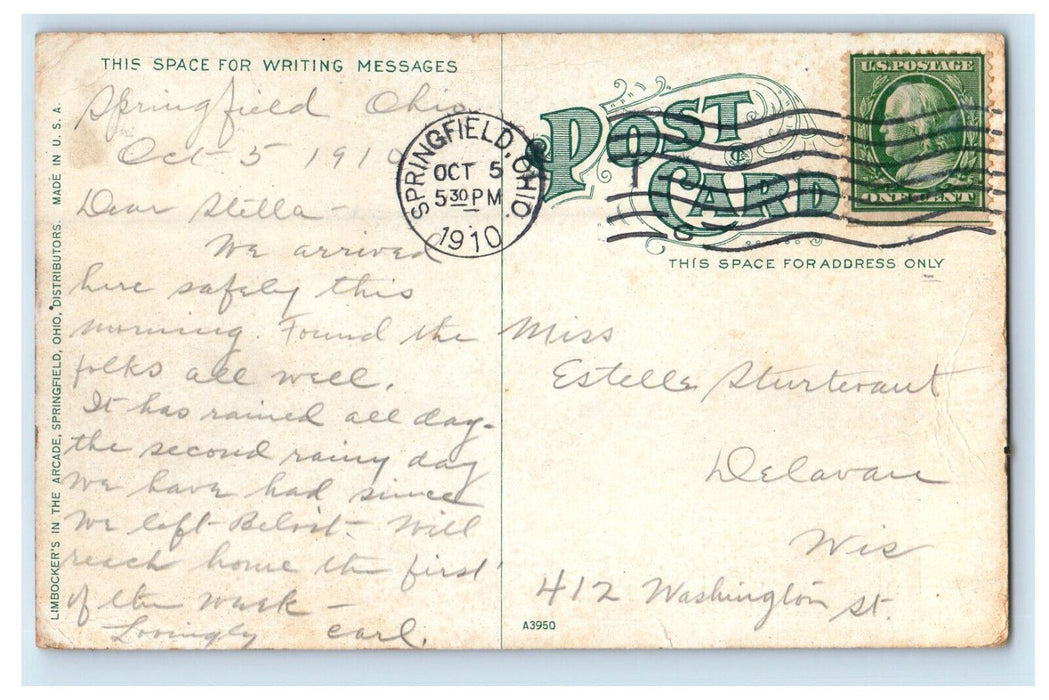 THIS SPACE FOR WRITING MESSAGES
Springfield Ohio
Oct 5 1910
Dear Stella -
We arrived
here safely this
morning. Found the
folks all well.
It has rained all day -
the second rainy day
we have had since
we left Beloit - Will
reach home the first
of the week -
Lovingly Earl.
LIMBOCKER'S IN THE ARCADE, SPRINGFIELD, OHIO, DISTRIBUTORS. MADE IN U. S. A.
SPRINGFIELD, OHIO.
OCT 5
5 30 PM
1910
POST
CARD
U.S. POSTAGE
ONE CENT
1
THIS SPACE FOR ADDRESS ONLY
Miss
Estelle Sturtevant
Delavan
Wis
412 Washington St.
A3950